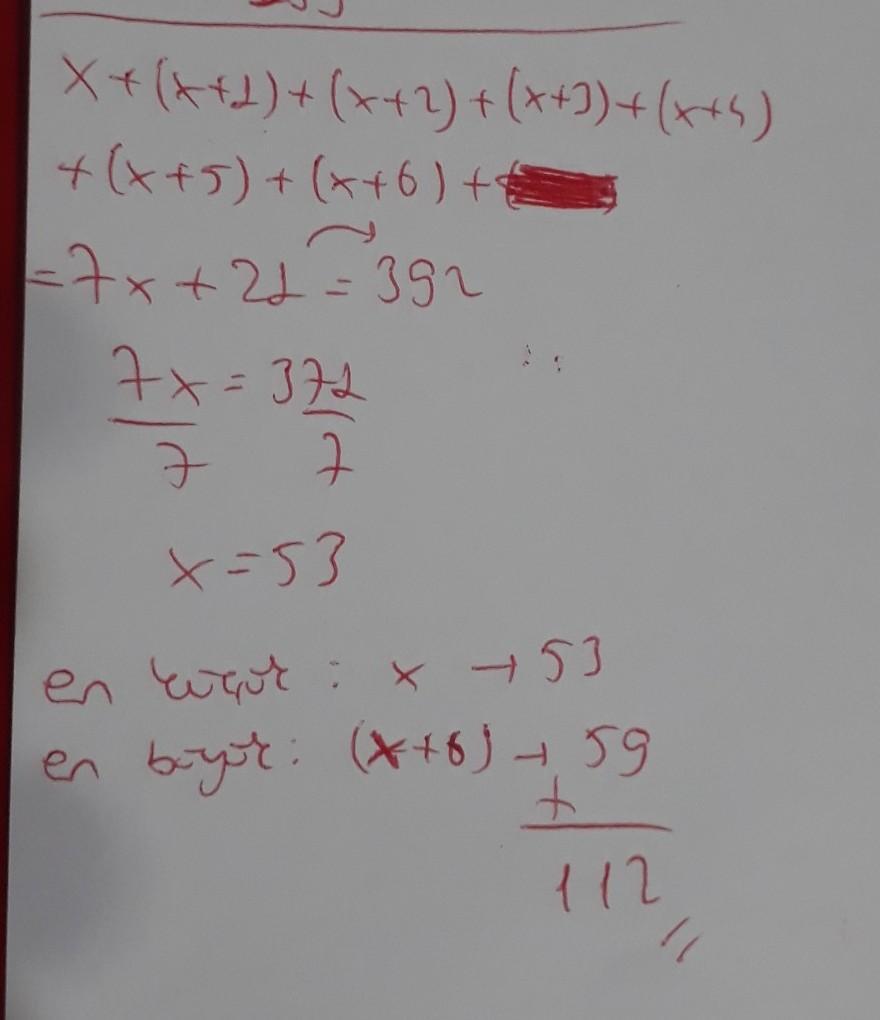 x+(x+1)+(x+2)+(x+3)+(x+4)
+(x+5)+(x+6)+
=7x+21=392
7x=371
7 7
x=53
en küçük : x → 53
en büyük : (x+6) → 59
+
112